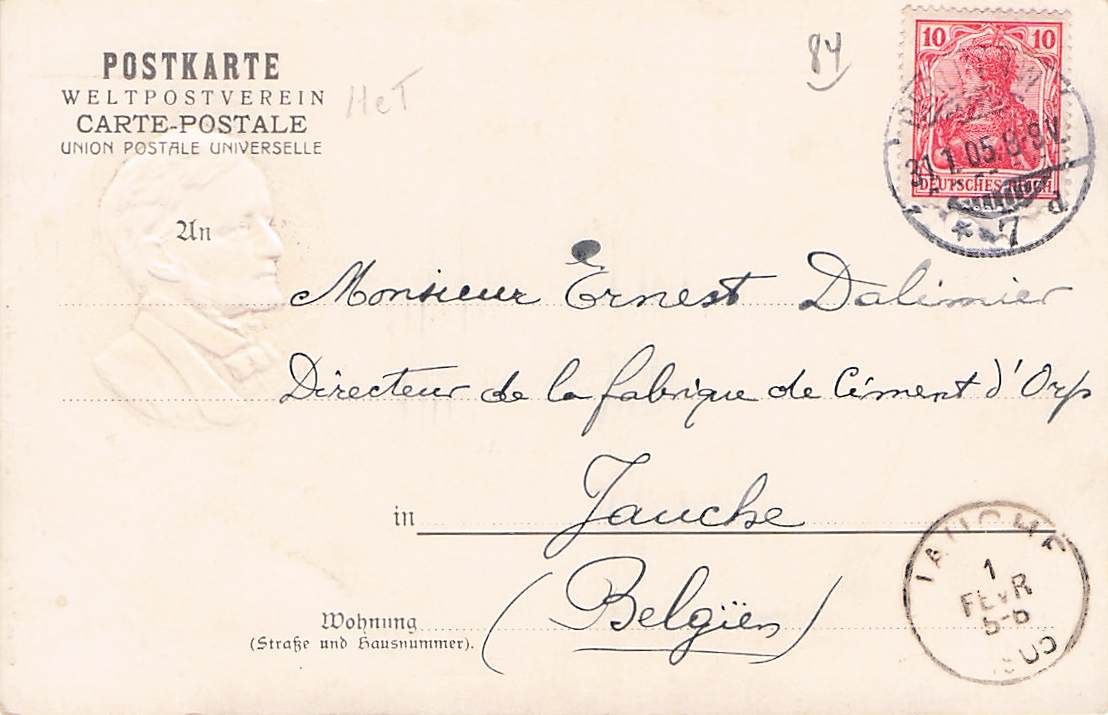 POSTKARTE
WELTPOSTVEREIN
CARTE-POSTALE
UNION POSTALE UNIVERSELLE
HeT
84
10 10
DEUTSCHES REICH
31.1.05.8-9V.
* 7 d
An
Monsieur Ernest Dalimier
Directeur de la fabrique de Ciment d'Orp
in Jauche
(Belgïen)
Wohnung
(Straße und Hausnummer).
JAUCHE
1
FEVR
1905